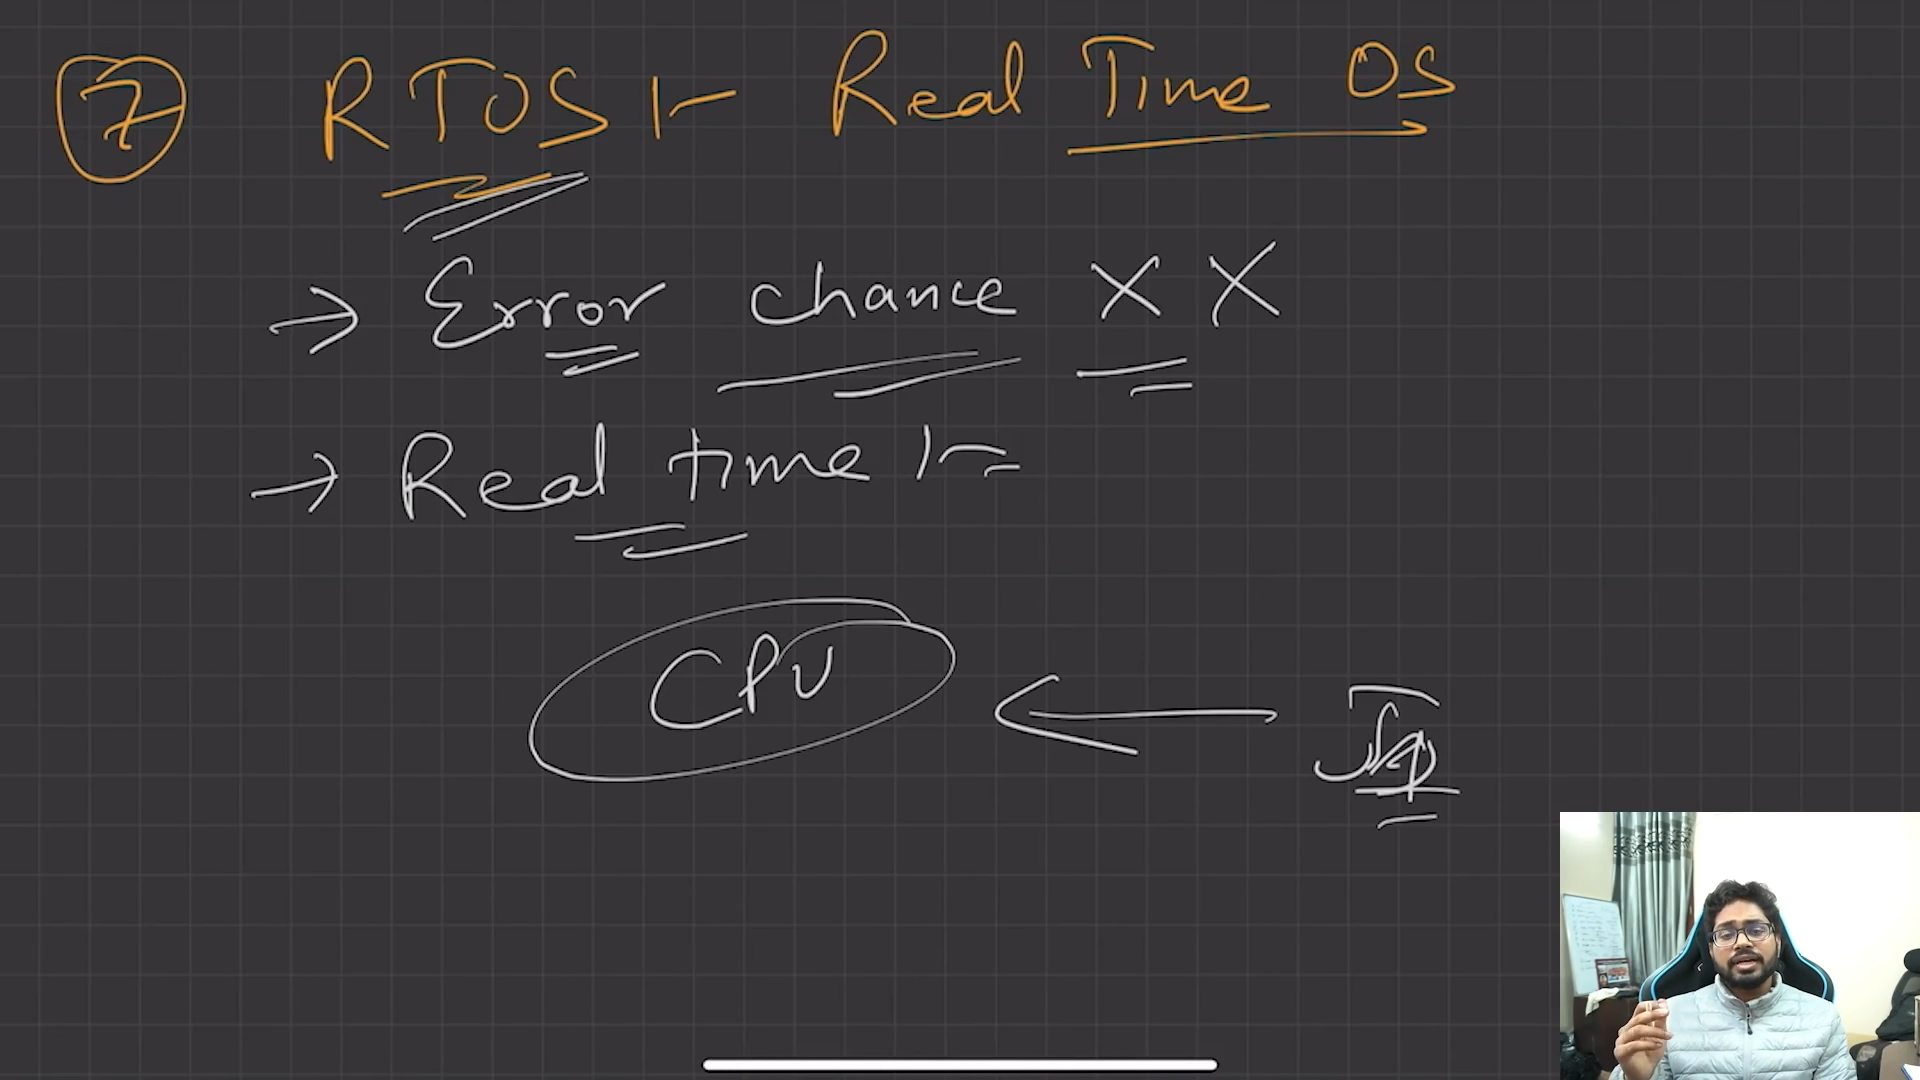 7 RTOS :- Real Time OS
→ Error chance X X
→ Real time :-
CPU ←